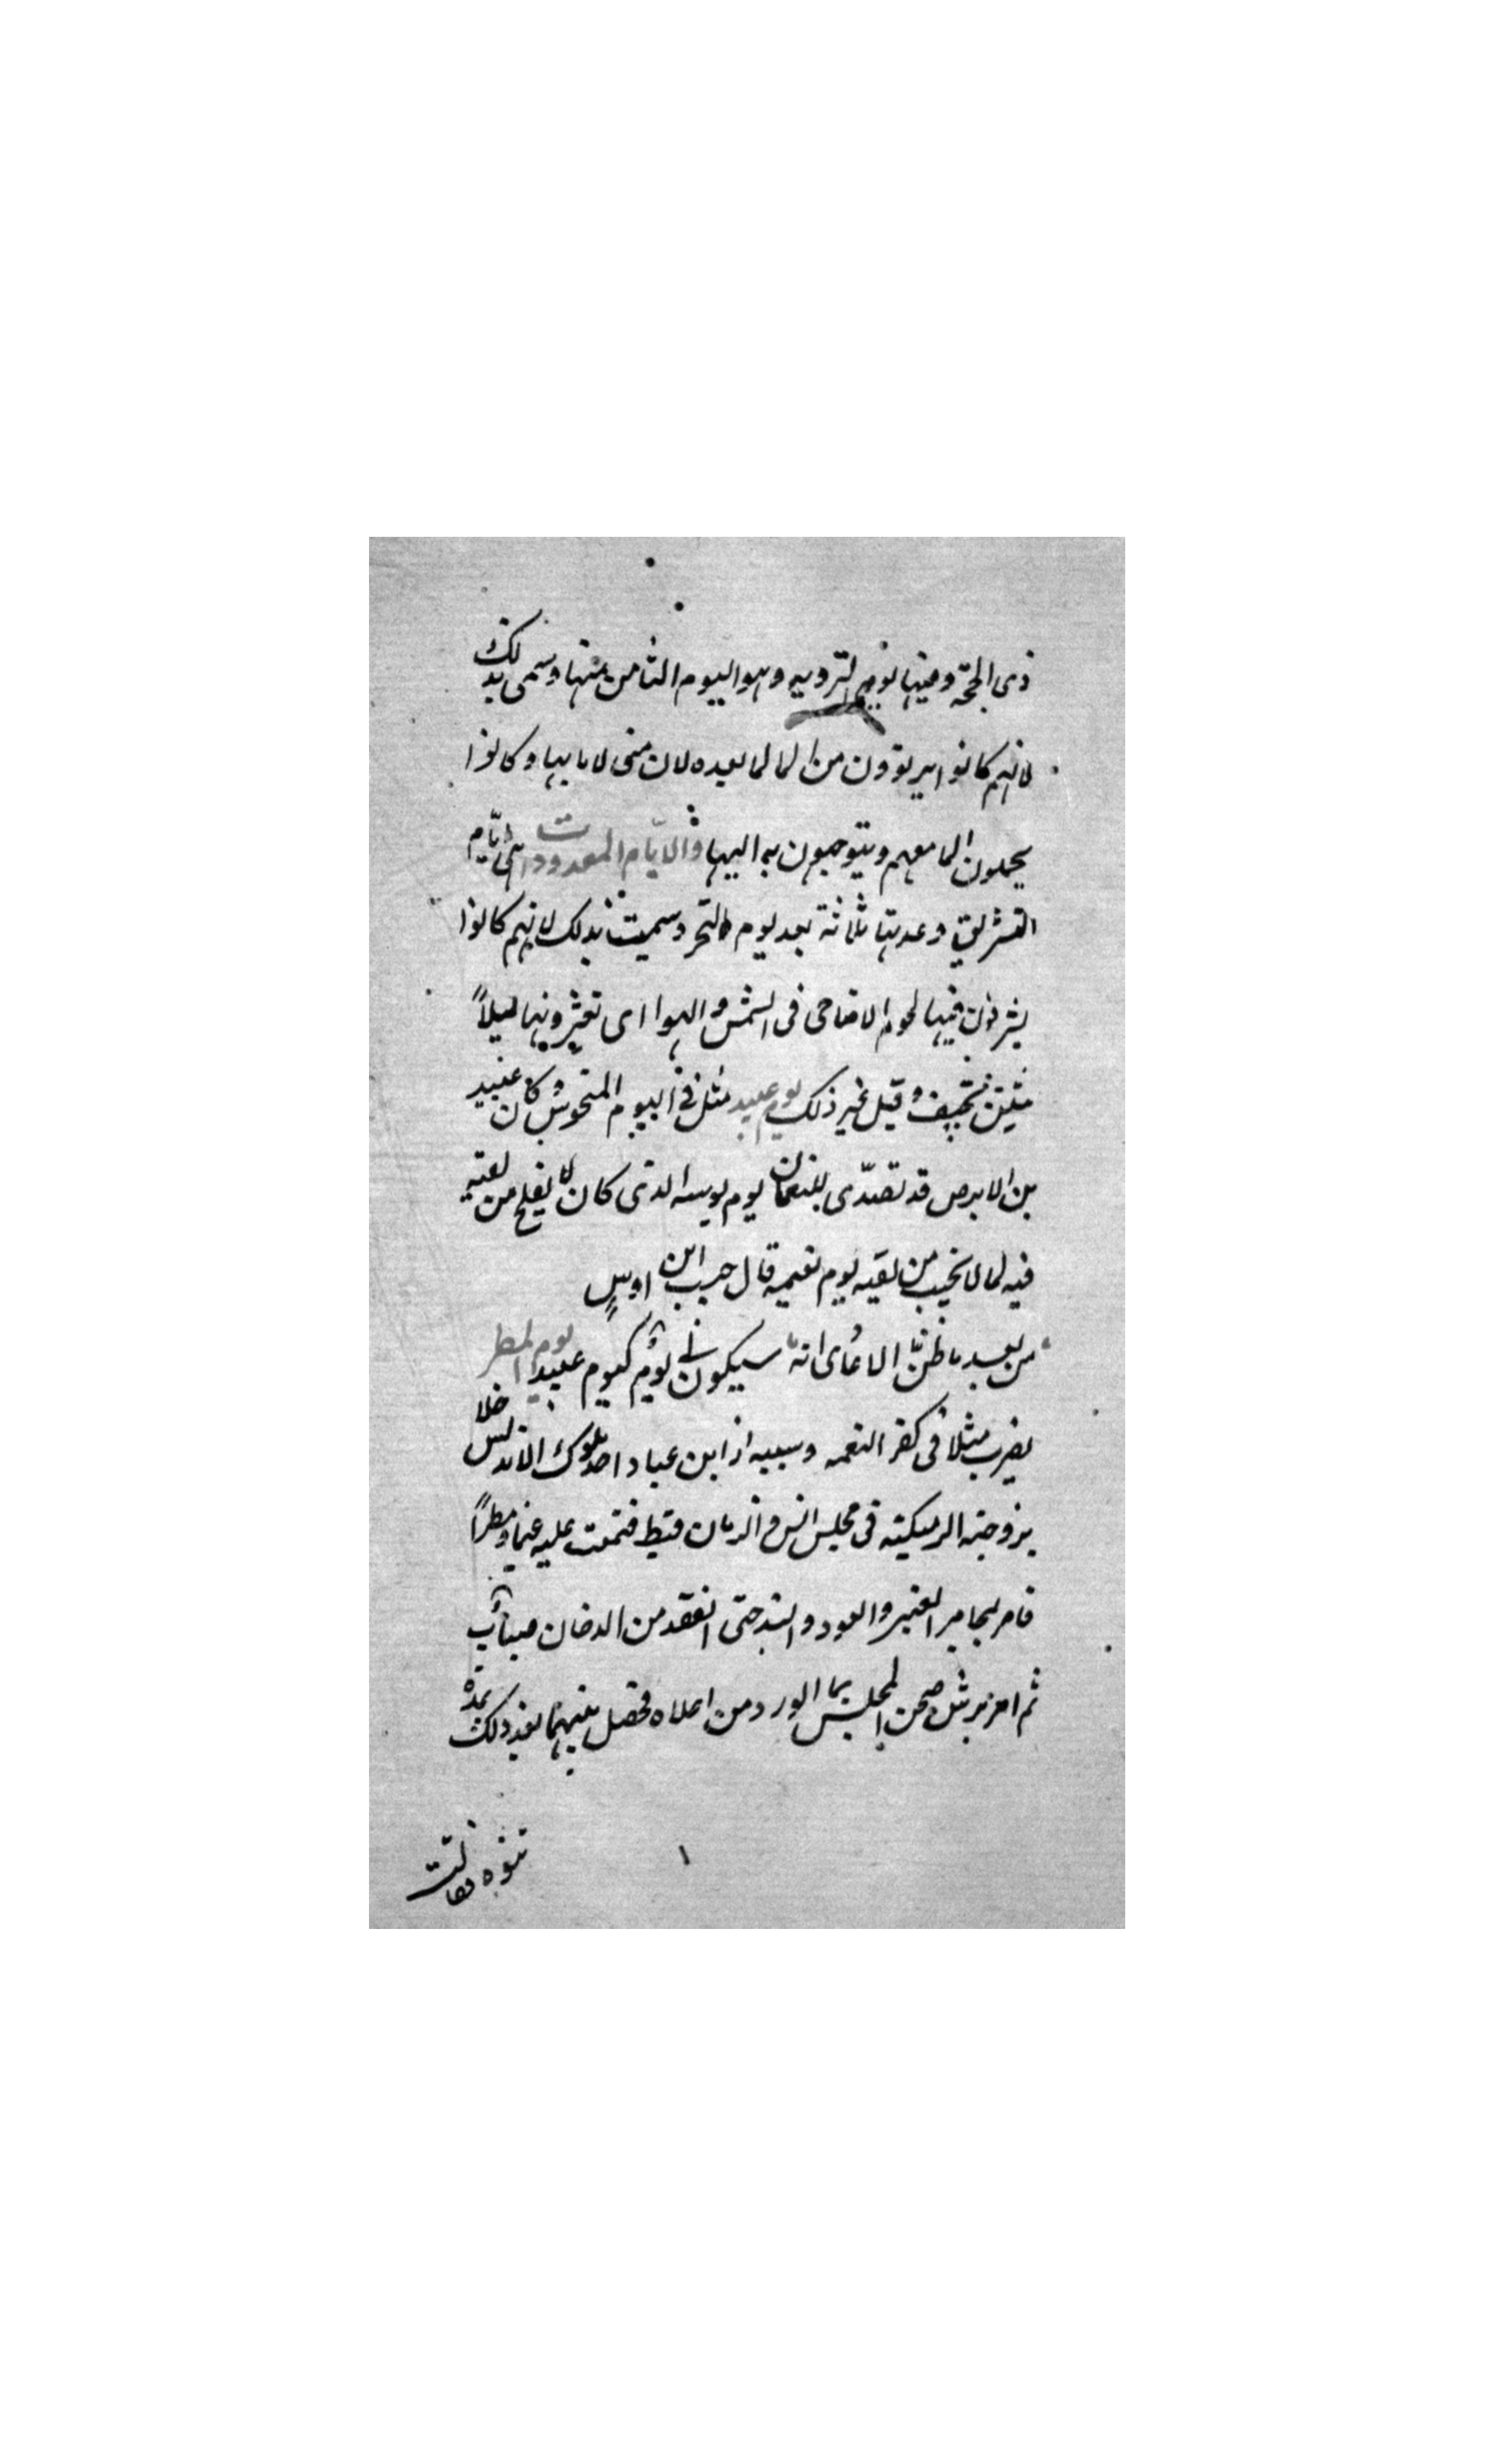 ذى الحجّة ومنها يوم التروية وهو اليوم الثامن منها وسمى بذلك
لانهم كانوا يرتوون من الما لما بعده لان منى لا ما بها وكانوا
يحملون الما معهم ويتوجهون به اليها والايّام المعدودات هى ايّام
التشريق وعدتها ثلاثة بعد يوم النحر وسميت بذلك لانهم كانوا
يشرقون فيها لحوم الاضاحى فى الشمس والهوا اى ليلاً
وقيل غير ذلك يوم عبيد مثل فى اليوم المنحوس وكان عبيد
بن الابرص قد تصدّى للنعمان يوم بوسه الذى كان لا يفلح من لقيه
فيه لما لا يخيب من لقيه يوم نعيمه قال حبيب ابن اوسٍ
من بعد ما ظنّ الاعادى انه سيكون لى يوم كيوم عبيد يوم المطر
يضرب مثلا فى كفر النعمه وسببه ان ابن عباد احد ملوك الاندلس خلا
بزوجته الرميكية فى مجلس انس والزمان قيظ فتمنت عليه غيما ومطراً
فامر بمجامر العنبر والعود والند حتى انعقد من الدخان ضباب
ثم امر برش صحن المجلس بما الورد من اعلاه فحصل بينهما بعد ذلك مدة
فقالت